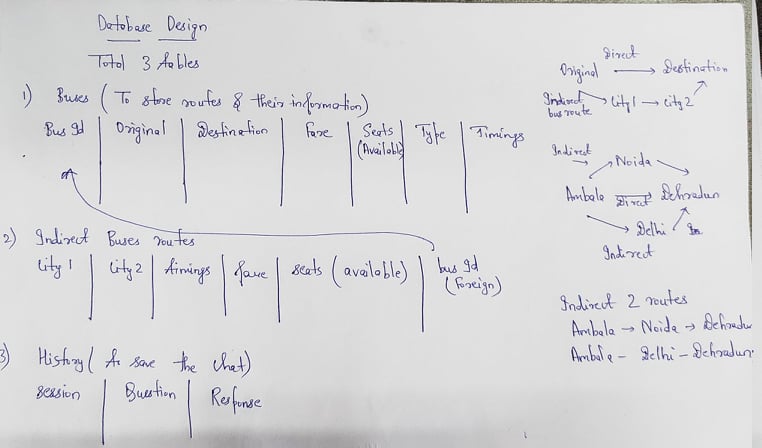 Database Design
Total 3 tables
1) Buses (To store routes & their information)
Bus Id | Original | Destination | Fare | Seats (Available) | Type | Timings
2) Indirect Buses routes
City 1 | City 2 | timings | fare | seats (available) | bus Id (Foreign)
3) History (to save the chat)
session | Question | Response
Direct
Original → Destination
Indirect bus route → City 1 → City 2
Indirect → Noida
Ambala → Direct → Dehradun
Delhi
Indirect
Indirect 2 routes
Ambala → Noida → Dehradun
Ambala - Delhi - Dehradun.